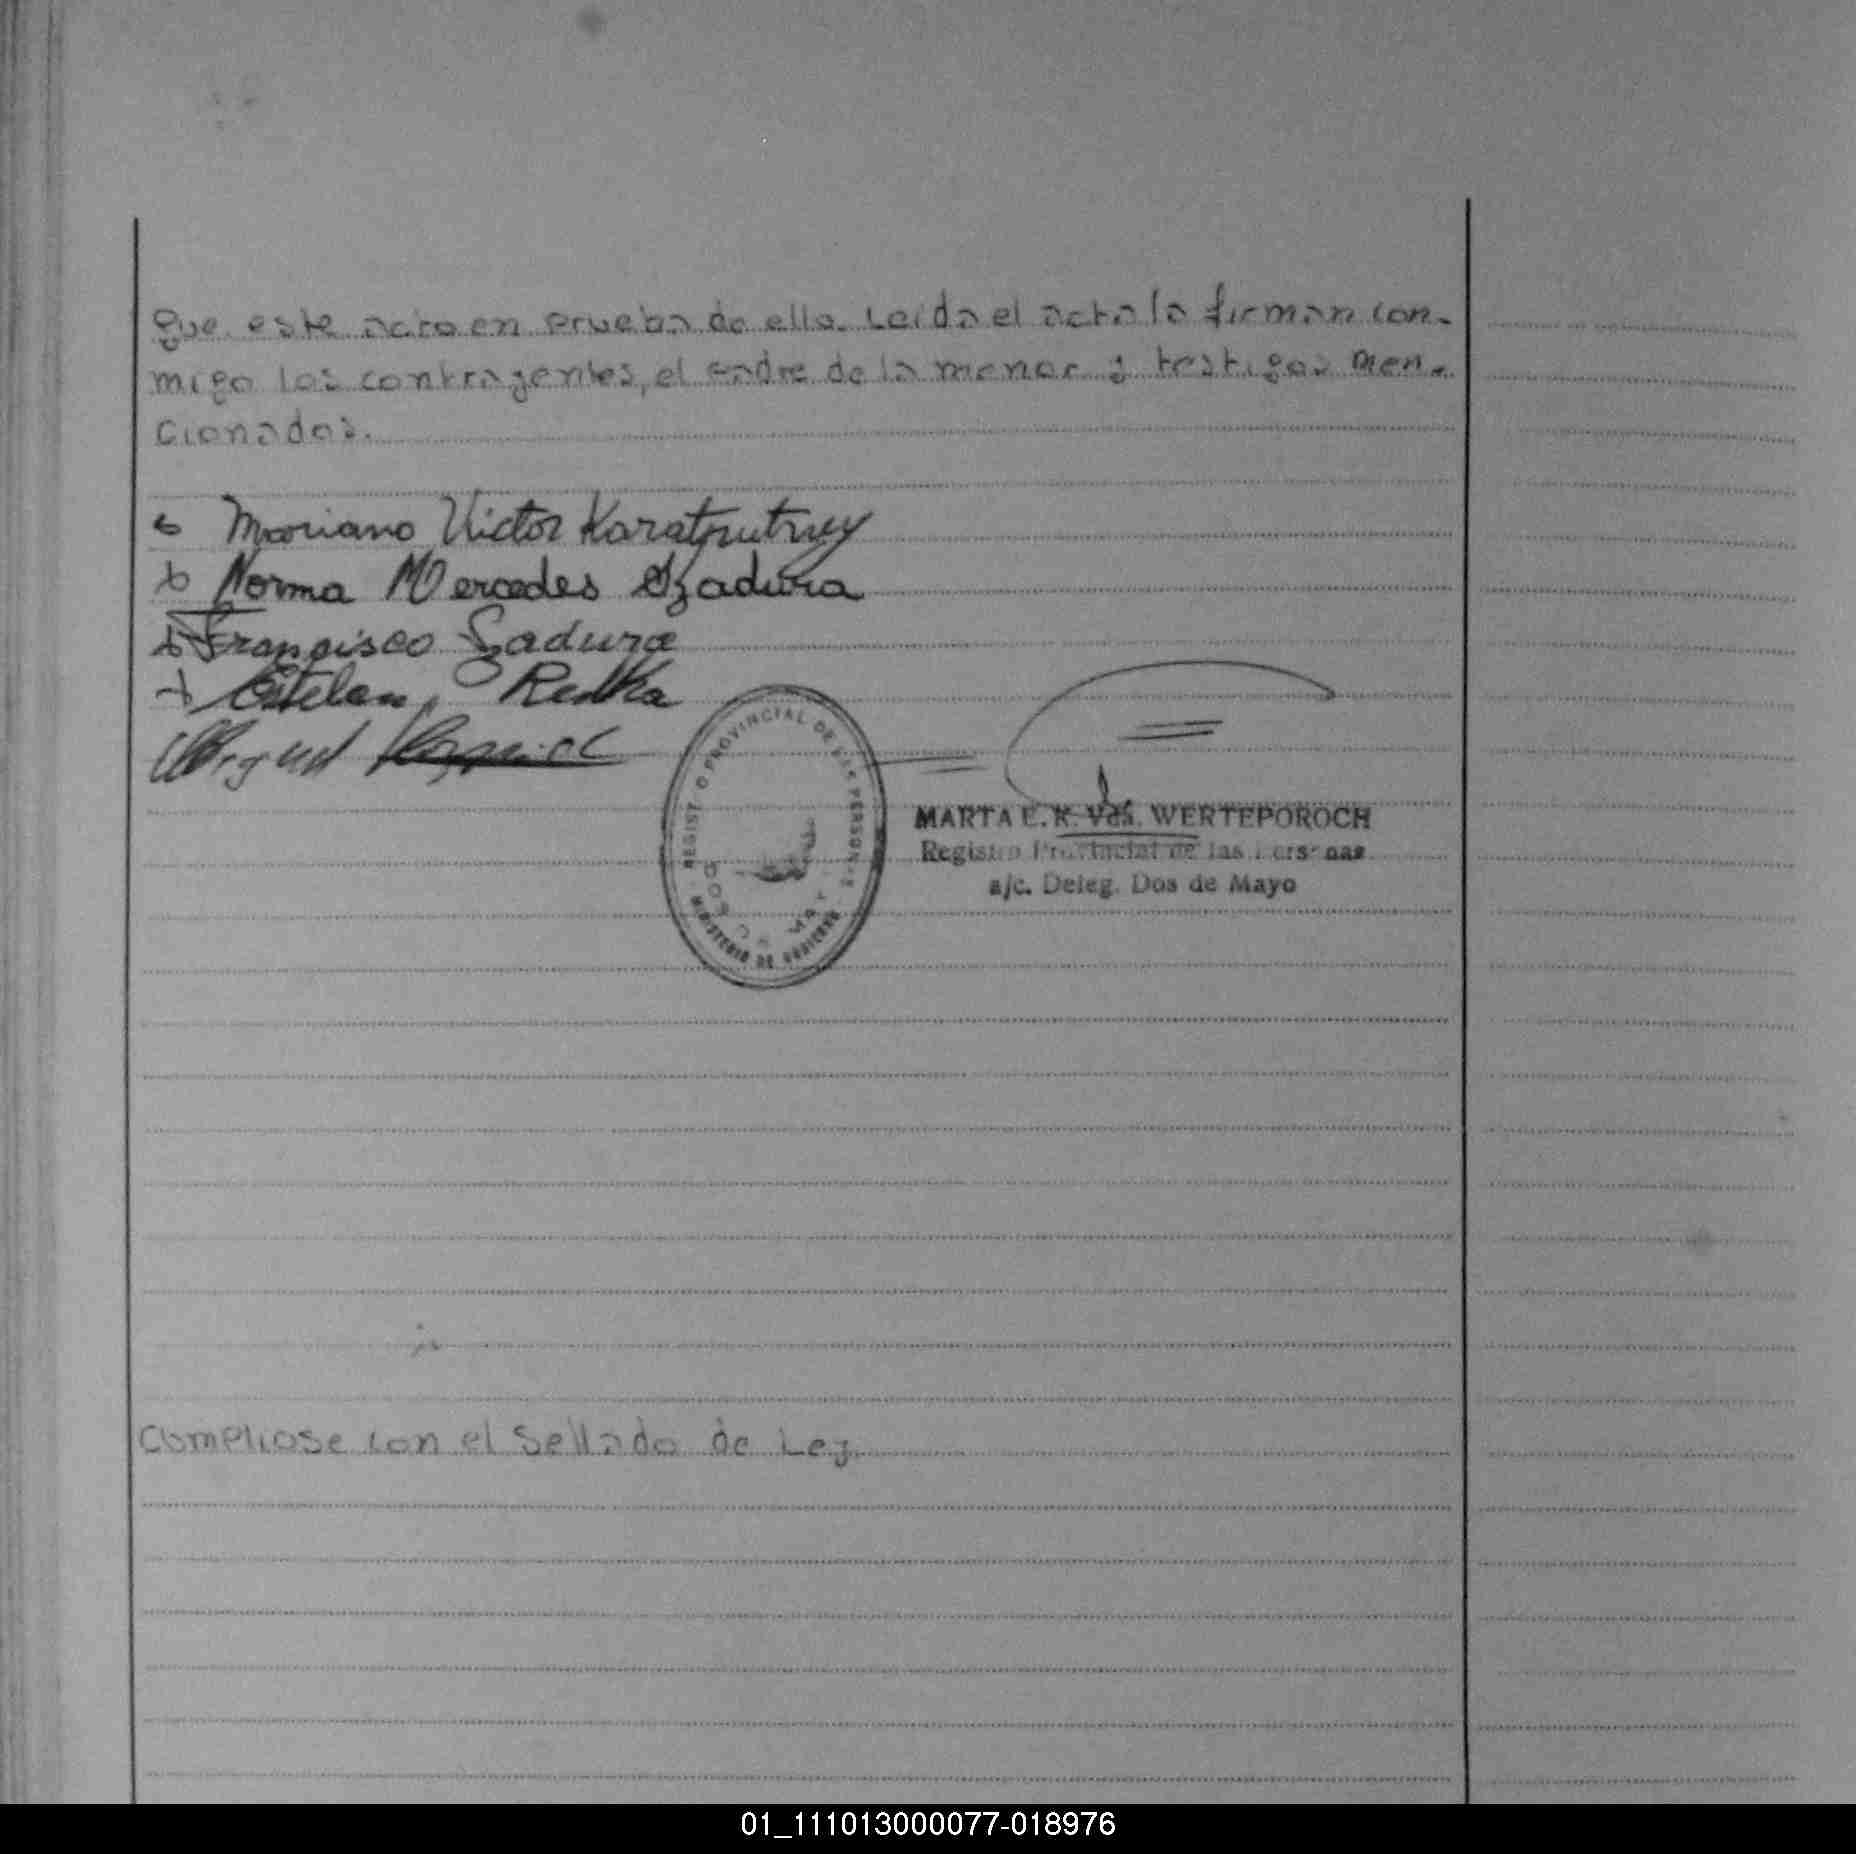 que este acto en prueba de ello. Leida el acta la firman con-
migo los contrayentes, el padre de la menor y testigos men-
cionados.
Mariano Victor Karatputney
Norma Mercedes Szadura
Francisco Szadura
Esteban Redka
Miguel
REGISTRO PROVINCIAL DE LAS PERSONAS
DOS DE MAYO
MINISTERIO DE GOBIERNO
MARTA E. K. Vda. WERTEPOROCH
Registro Provincial de las Personas
a/c. Deleg. Dos de Mayo
Cumpliose con el Sellado de Ley.
01_111013000077-018976